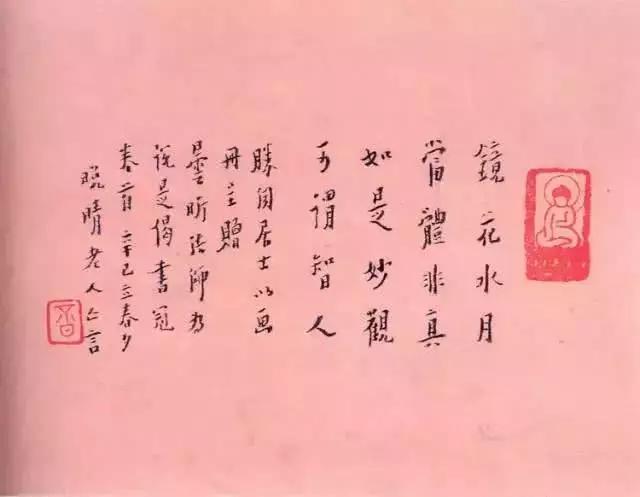 鏡花水月
當體非真
如是妙觀
可謂智人
勝閏居士以画
冊呈贈
曇昕法師為
說是偈書冠
卷首 辛巳立春夕
晚晴老人亡言